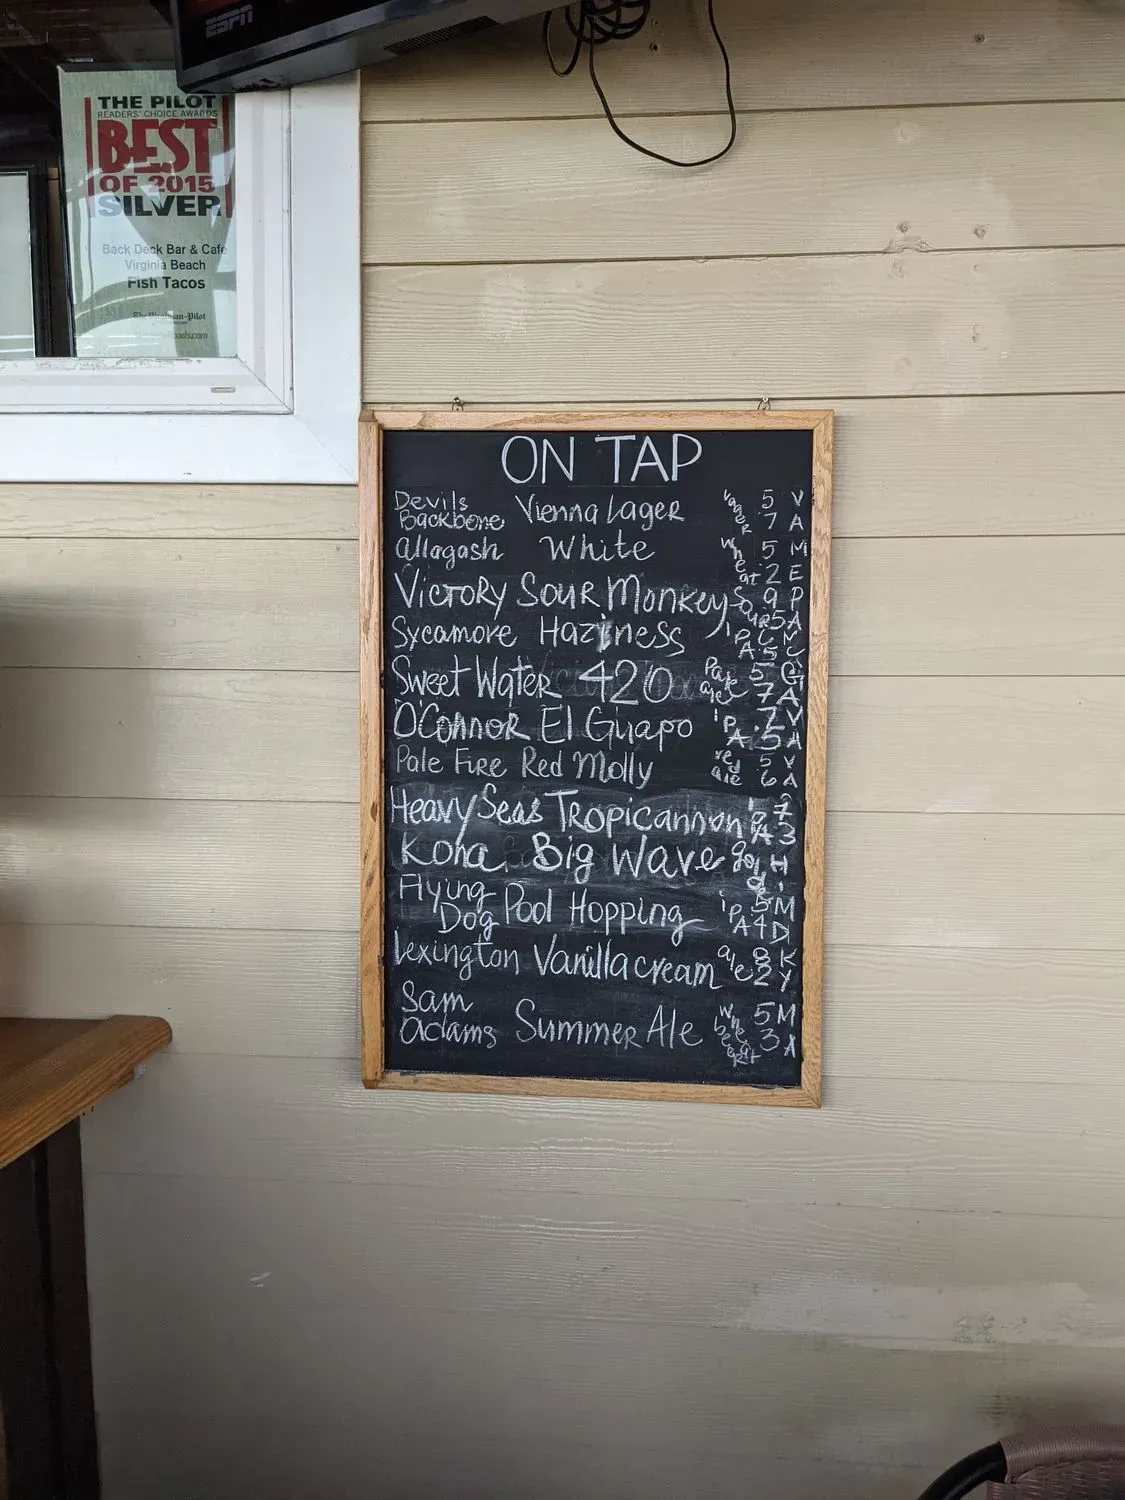 ESPN
THE PILOT
READERS' CHOICE AWARDS
BEST
OF 2015
SILVER
Back Deck Bar & Cafe
Virginia Beach
Fish Tacos
The Virginian-Pilot
ON TAP
Devils Backbone Vienna Lager Lager 5 7 VA
Allagash White Wheat 5 2 ME
Victory Sour Monkey Sour 9 5 PA
Sycamore Haziness IPA 6 5 NC
Sweet Water 420 Pale ale 5 7 GA
O'Connor El Guapo IPA 7.5 VA
Pale Fire Red Molly red ale 5 6 VA
Heavy Seas Tropicannon IPA 7 3
Kona Big Wave gold HI
Flying Dog Pool Hopping IPA 5 4 MD
Lexington Vanilla cream ale 8 2 KY
Sam Adams Summer Ale Wheat beer 5 3 MA